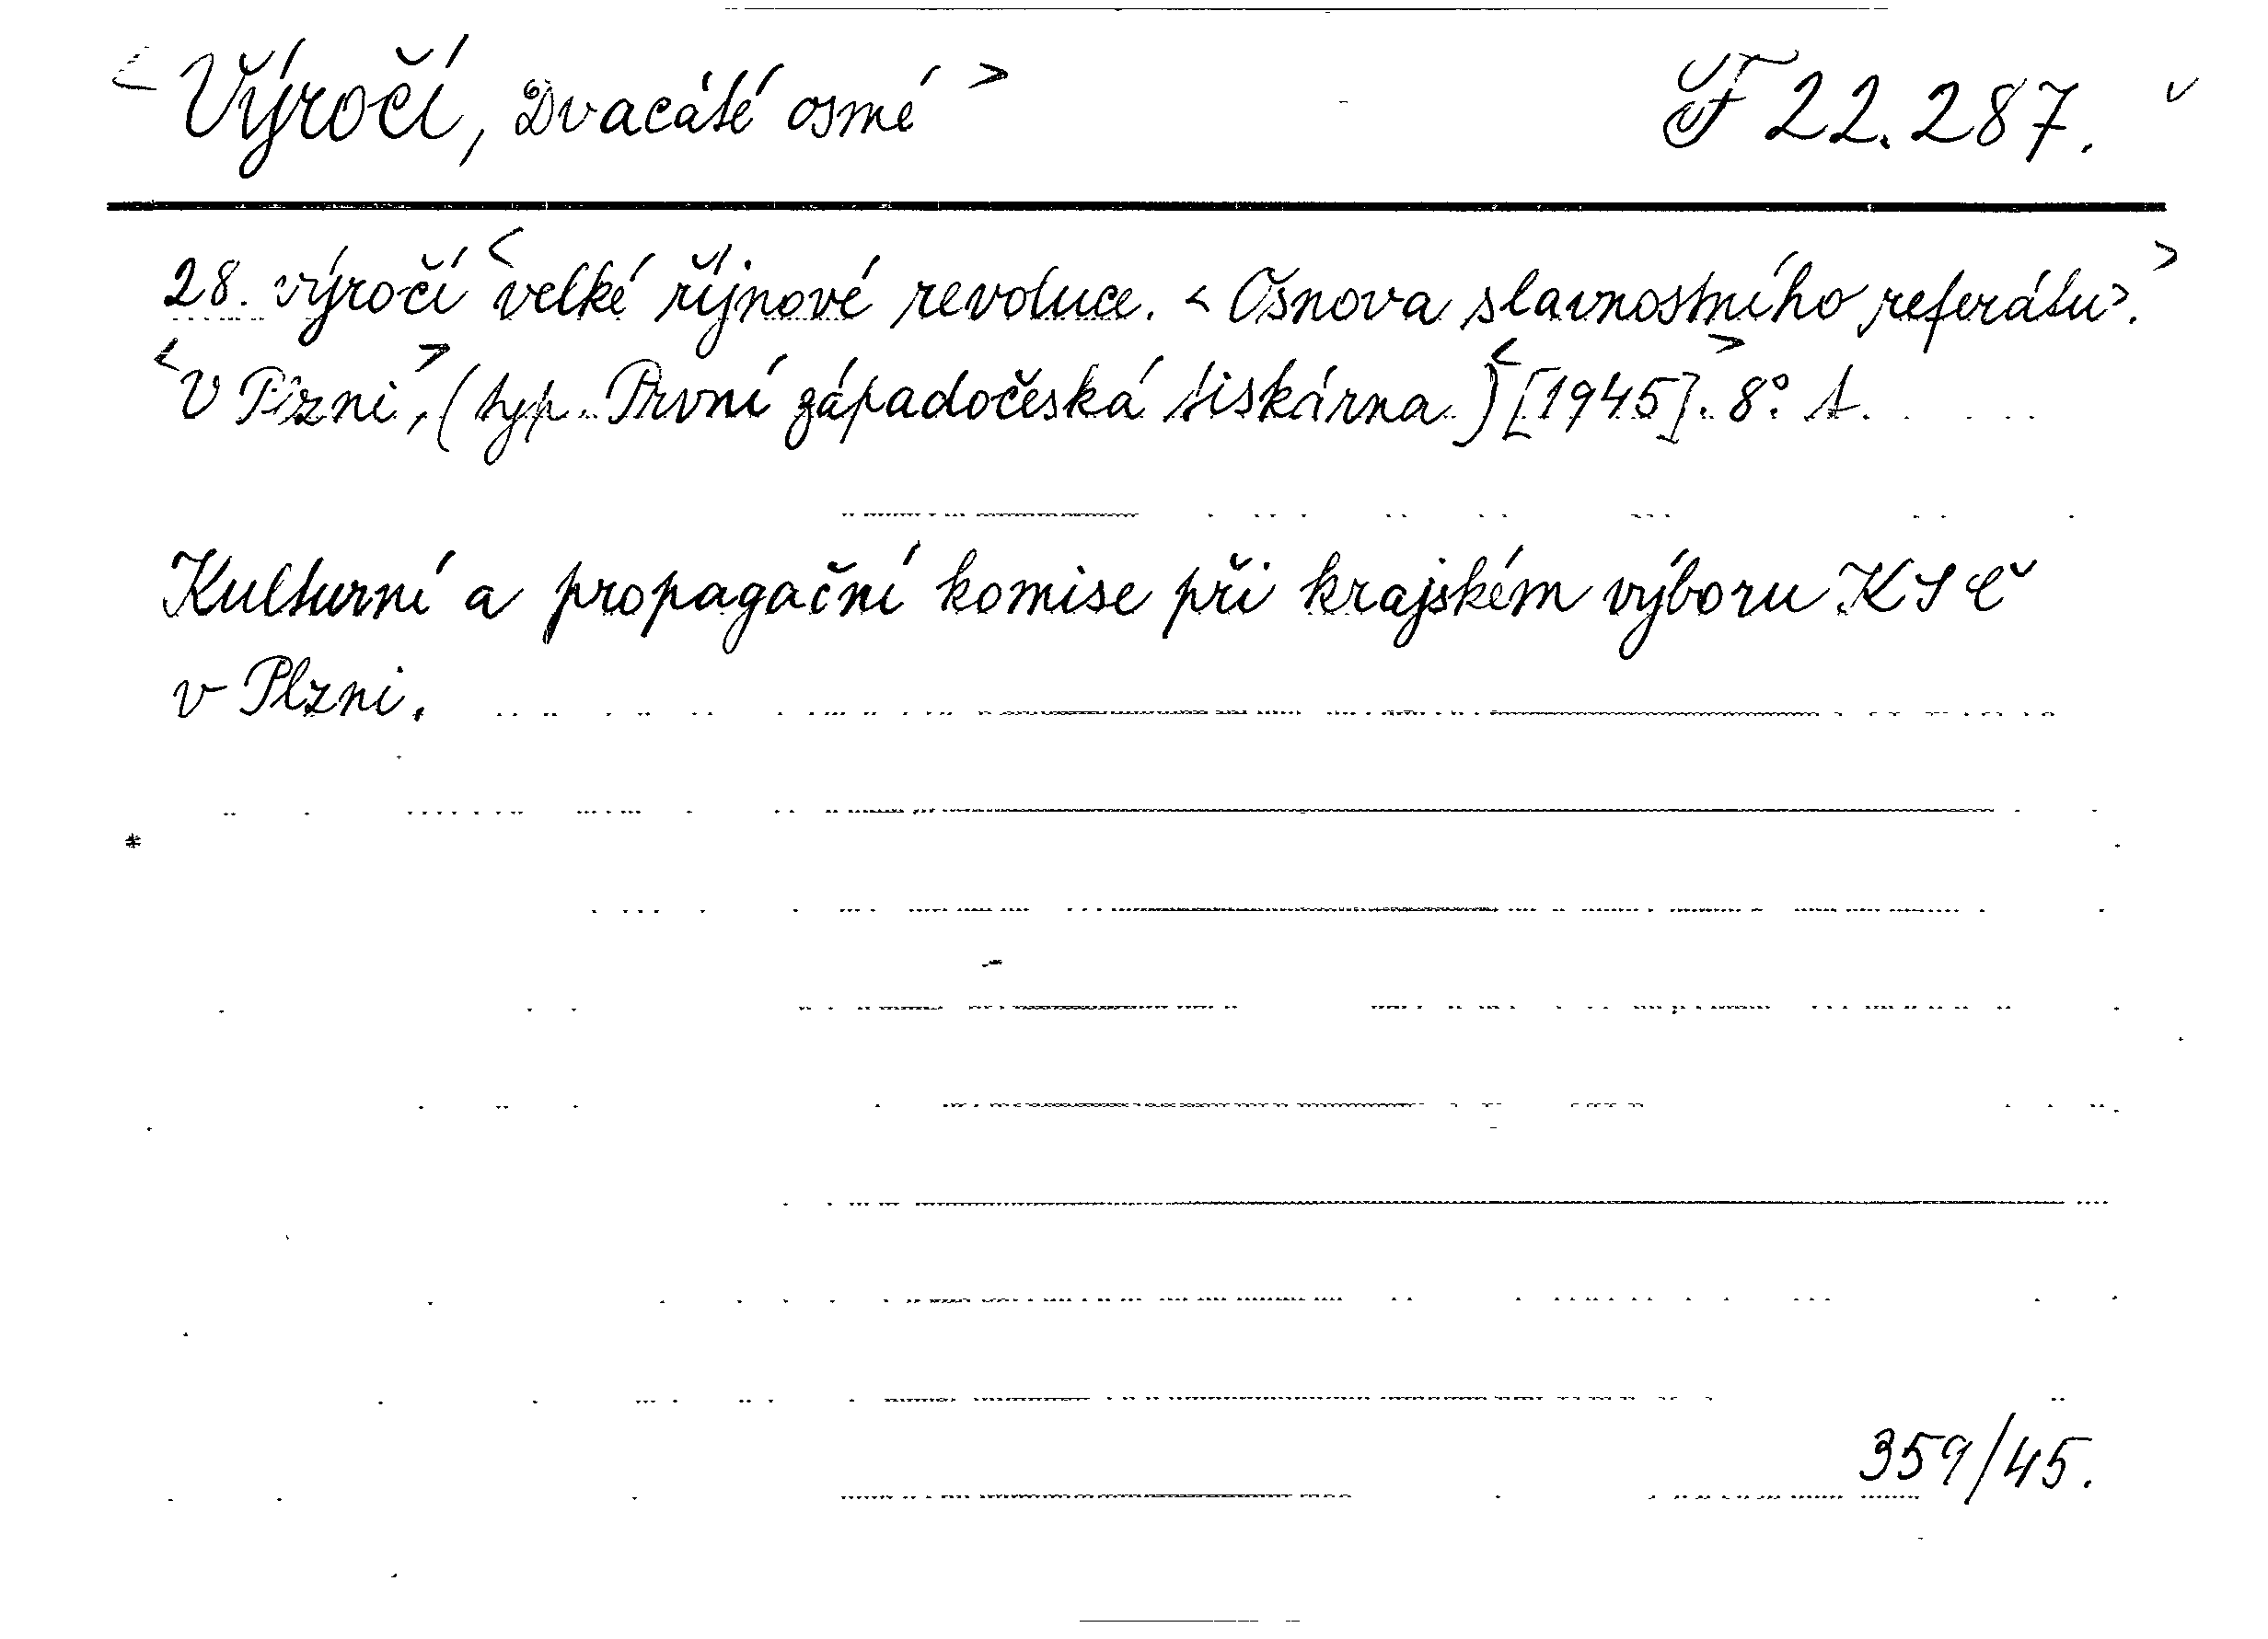 <Výročí, Dvacáté osmé> Čf 22.287.
28. výročí <velké říjnové revoluce. <Osnova slavnostního referátu>.>
<V Plzni>, (typ. První západočeská tiskárna) <[1945].> 8°. A.
Kulturní a propagační komise při krajském výboru KSČ
v Plzni.
359/45.